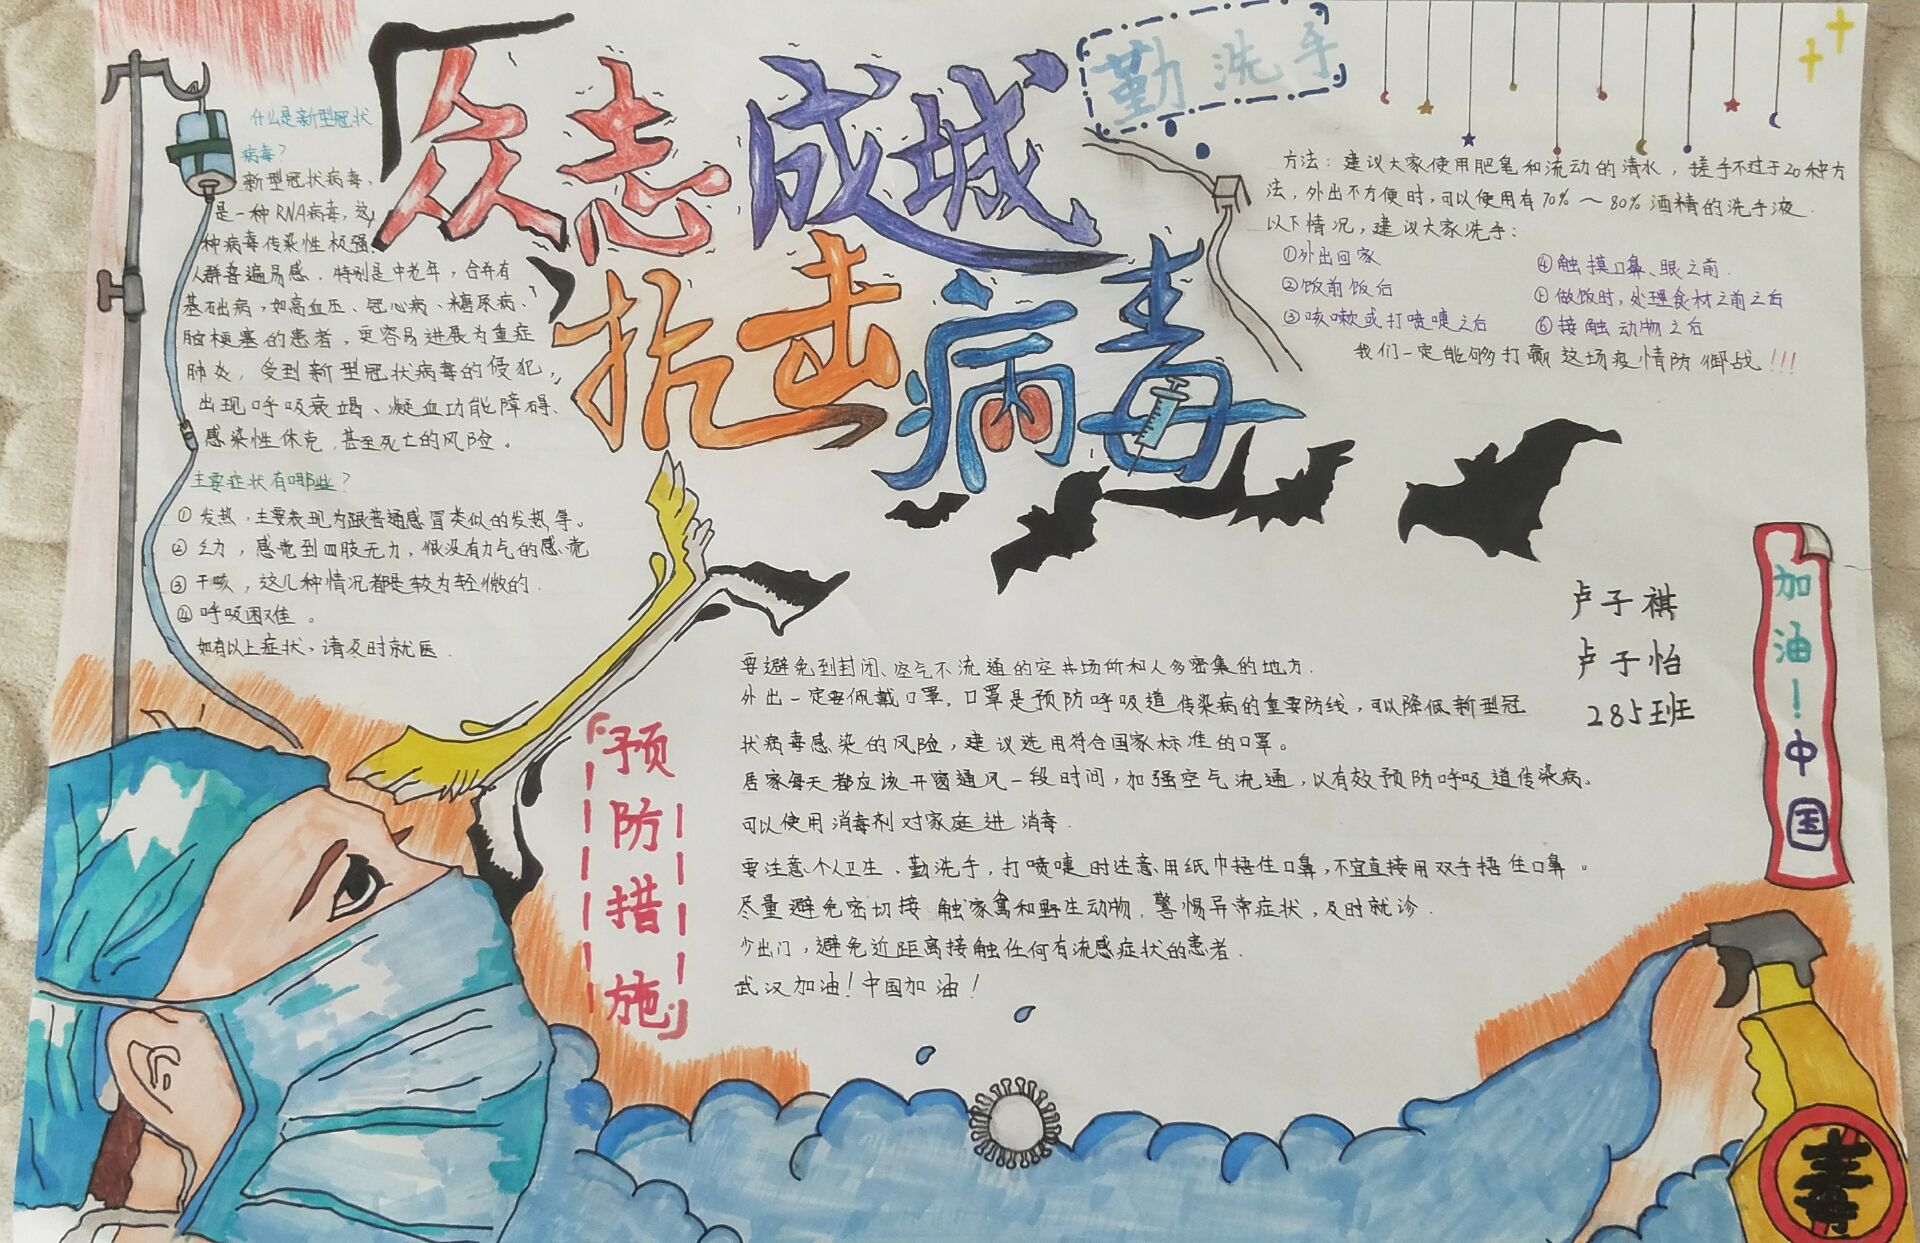 众志成城
抗击病毒
勤洗手
什么是新型冠状
病毒？
新型冠状病毒，
是一种RNA病毒，这
种病毒传染性极强，
人群普遍易感，特别是中老年，合并有
基础病，如高血压、冠心病、糖尿病、
脑梗塞的患者，更容易进展为重症
肺炎，受到新型冠状病毒的侵犯，
出现呼吸衰竭、凝血功能障碍、
感染性休克，甚至死亡的风险。
主要症状有哪些？
①发热，主要表现为跟普通感冒类似的发热等。
②乏力，感觉到四肢无力，很没有力气的感觉
③干咳，这几种情况都是较为轻微的.
④呼吸困难。
如有以上症状，请及时就医.
方法：建议大家使用肥皂和流动的清水，搓手不过于20种方
法，外出不方便时，可以使用有70%～80%酒精的洗手液.
以下情况，建议大家洗手：
①外出回家
②饭前饭后
③咳嗽或打喷嚏之后
④触摸口鼻、眼之前.
⑤做饭时，处理食材之前之后
⑥接触动物之后
我们一定能够打赢这场疫情防御战!!!
卢子祺
卢子怡
285班
加油！中国
预防措施
要避免到封闭、空气不流通的空共场所和人多密集的地方.
外出一定要佩戴口罩，口罩是预防呼吸道传染病的重要防线，可以降低新型冠
状病毒感染的风险，建议选用符合国家标准的口罩。
居家每天都应该开窗通风一段时间，加强空气流通，以有效预防呼吸道传染病。
可以使用消毒剂对家庭进消毒.
要注意个人卫生，勤洗手，打喷嚏时注意用纸巾捂住口鼻，不宜直接用双手捂住口鼻。
尽量避免密切接触家禽和野生动物，警惕异常症状，及时就诊.
少出门，避免近距离接触任何有流感症状的患者.
武汉加油！中国加油！
毒